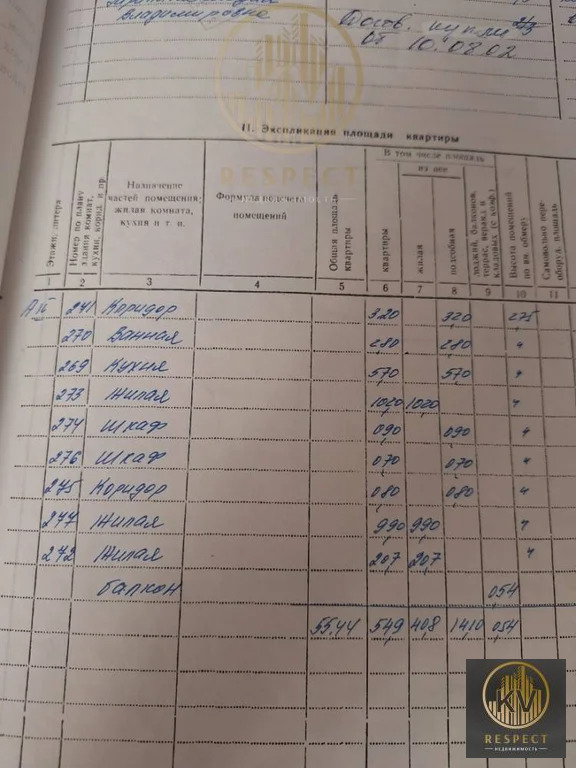 Владимировна
Догов. купли 2/3
от 10.08.02
II. Экспликация площади квартиры
RESPECT
НЕДВИЖИМОСТЬ
Этажи, литера
Номер по плану здания комнат, кухни, корид. и пр.
Назначение частей помещения; жилая комната, кухня и т. п.
Формула подсчета помещений
Общая площадь квартиры
В том числе площадь
из нее
квартиры
жилая
подсобная
лоджий, балконов, террас, веранд и кладовых (с коэф.)
Высота помещений по вн. обмеру
Самовольно пере-оборуд. площадь
1 2 3 4 5 6 7 8 9 10 11
241 Коридор 3,20 3,20 2,75
270 Ванная 2,80 2,80 "
269 Кухня 5,70 5,70 "
273 Жилая 10,00 10,00 "
274 Шкаф 0,90 0,90 "
276 Шкаф 0,70 0,70 "
275 Коридор 0,80 0,80 "
277 Жилая 9,90 9,90 "
272 Жилая 20,7 20,7 "
балкон 0,54
55,44 54,9 40,8 14,10 0,54
KV
RESPECT
НЕДВИЖИМОСТЬ